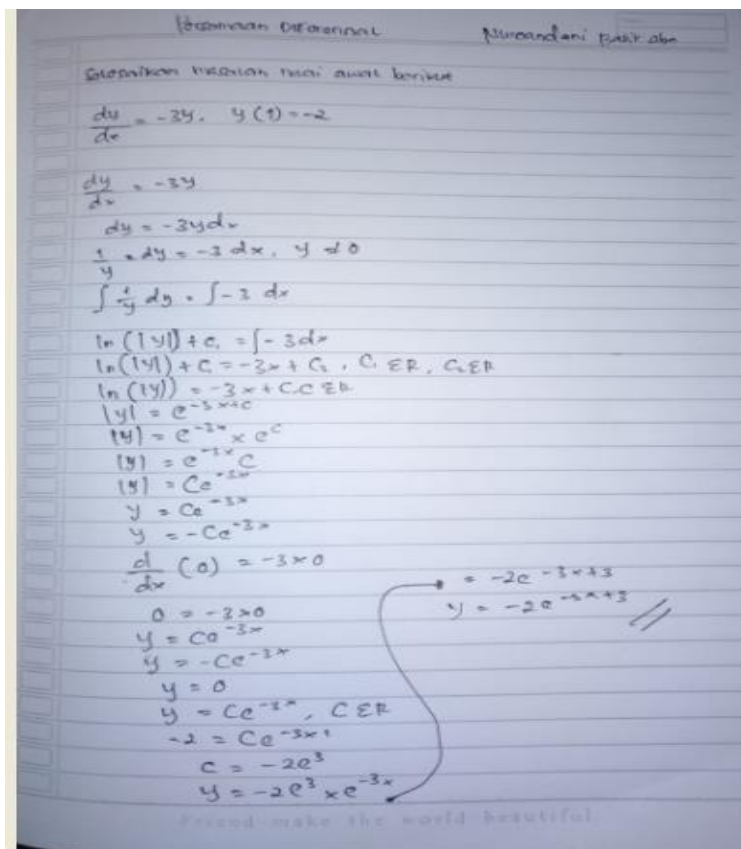 Persamaan Diferensial
Selesaikan masalah nilai awal berikut
dy/dx = -3y, y(1) = -2
dy/dx = -3y
dy = -3y dx
1/y × dy = -3 dx, y ≠ 0
∫ 1/y dy = ∫ -3 dx
ln(|y|) + C₁ = ∫ -3 dx
ln(|y|) + C = -3x + C₂, C₁ ∈ R, C₂ ∈ R
ln(|y|) = -3x + C, C ∈ R
|y| = e^(-3x+c)
|y| = e^(-3x) × e^c
|y| = e^(-3x) C
|y| = Ce^(-3x)
y = Ce^(-3x)
y = -Ce^(-3x)
d/dx (0) = -3×0
0 = -3×0
y = Ce^(-3x)
y = -Ce^(-3x)
y = 0
y = Ce^(-3x), C ∈ R
-2 = Ce^(-3×1)
C = -2e³
y = -2e³ × e^(-3x)
= -2e^(-3x+3)
y = -2e^(-3x+3)
Friend make the world beautiful